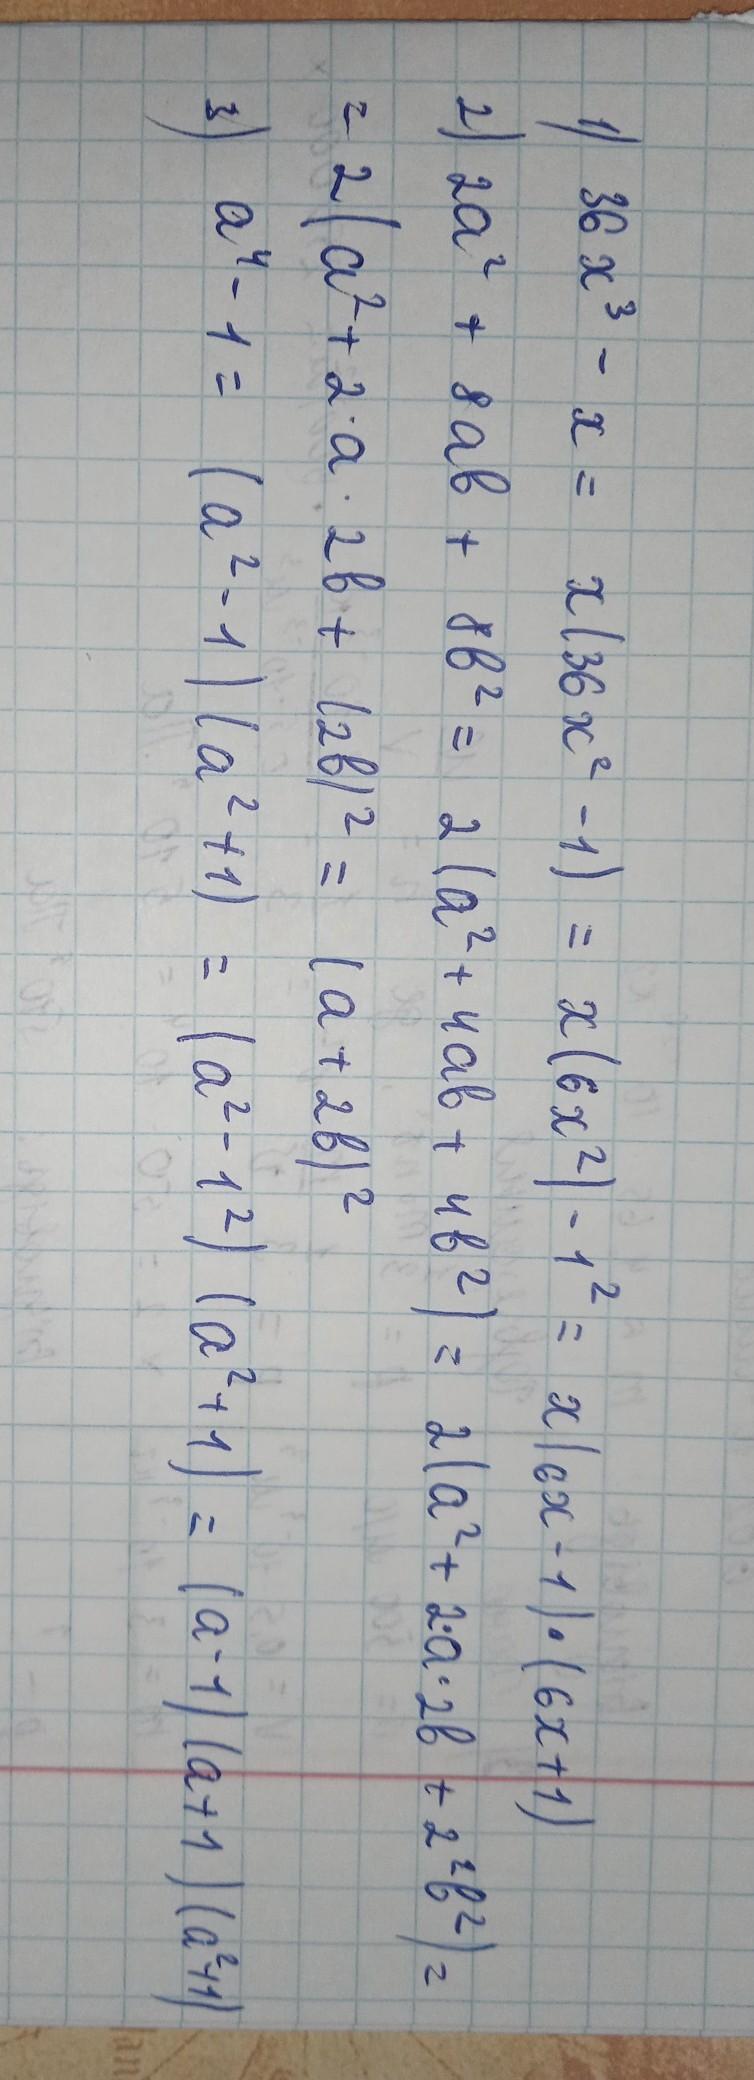 1) 36x³ - x = x(36x² - 1) = x(6x²) - 1² = x(6x - 1)·(6x + 1)
2) 2a² + 8ab + 8b² = 2(a² + 4ab + 4b²) = 2(a² + 2·a·2b + 2²b²) =
= 2(a² + 2·a·2b + (2b)² = (a + 2b)²
3) a⁴ - 1 = (a² - 1)(a² + 1) = (a² - 1²)(a² + 1) = (a - 1)(a + 1)(a² + 1)